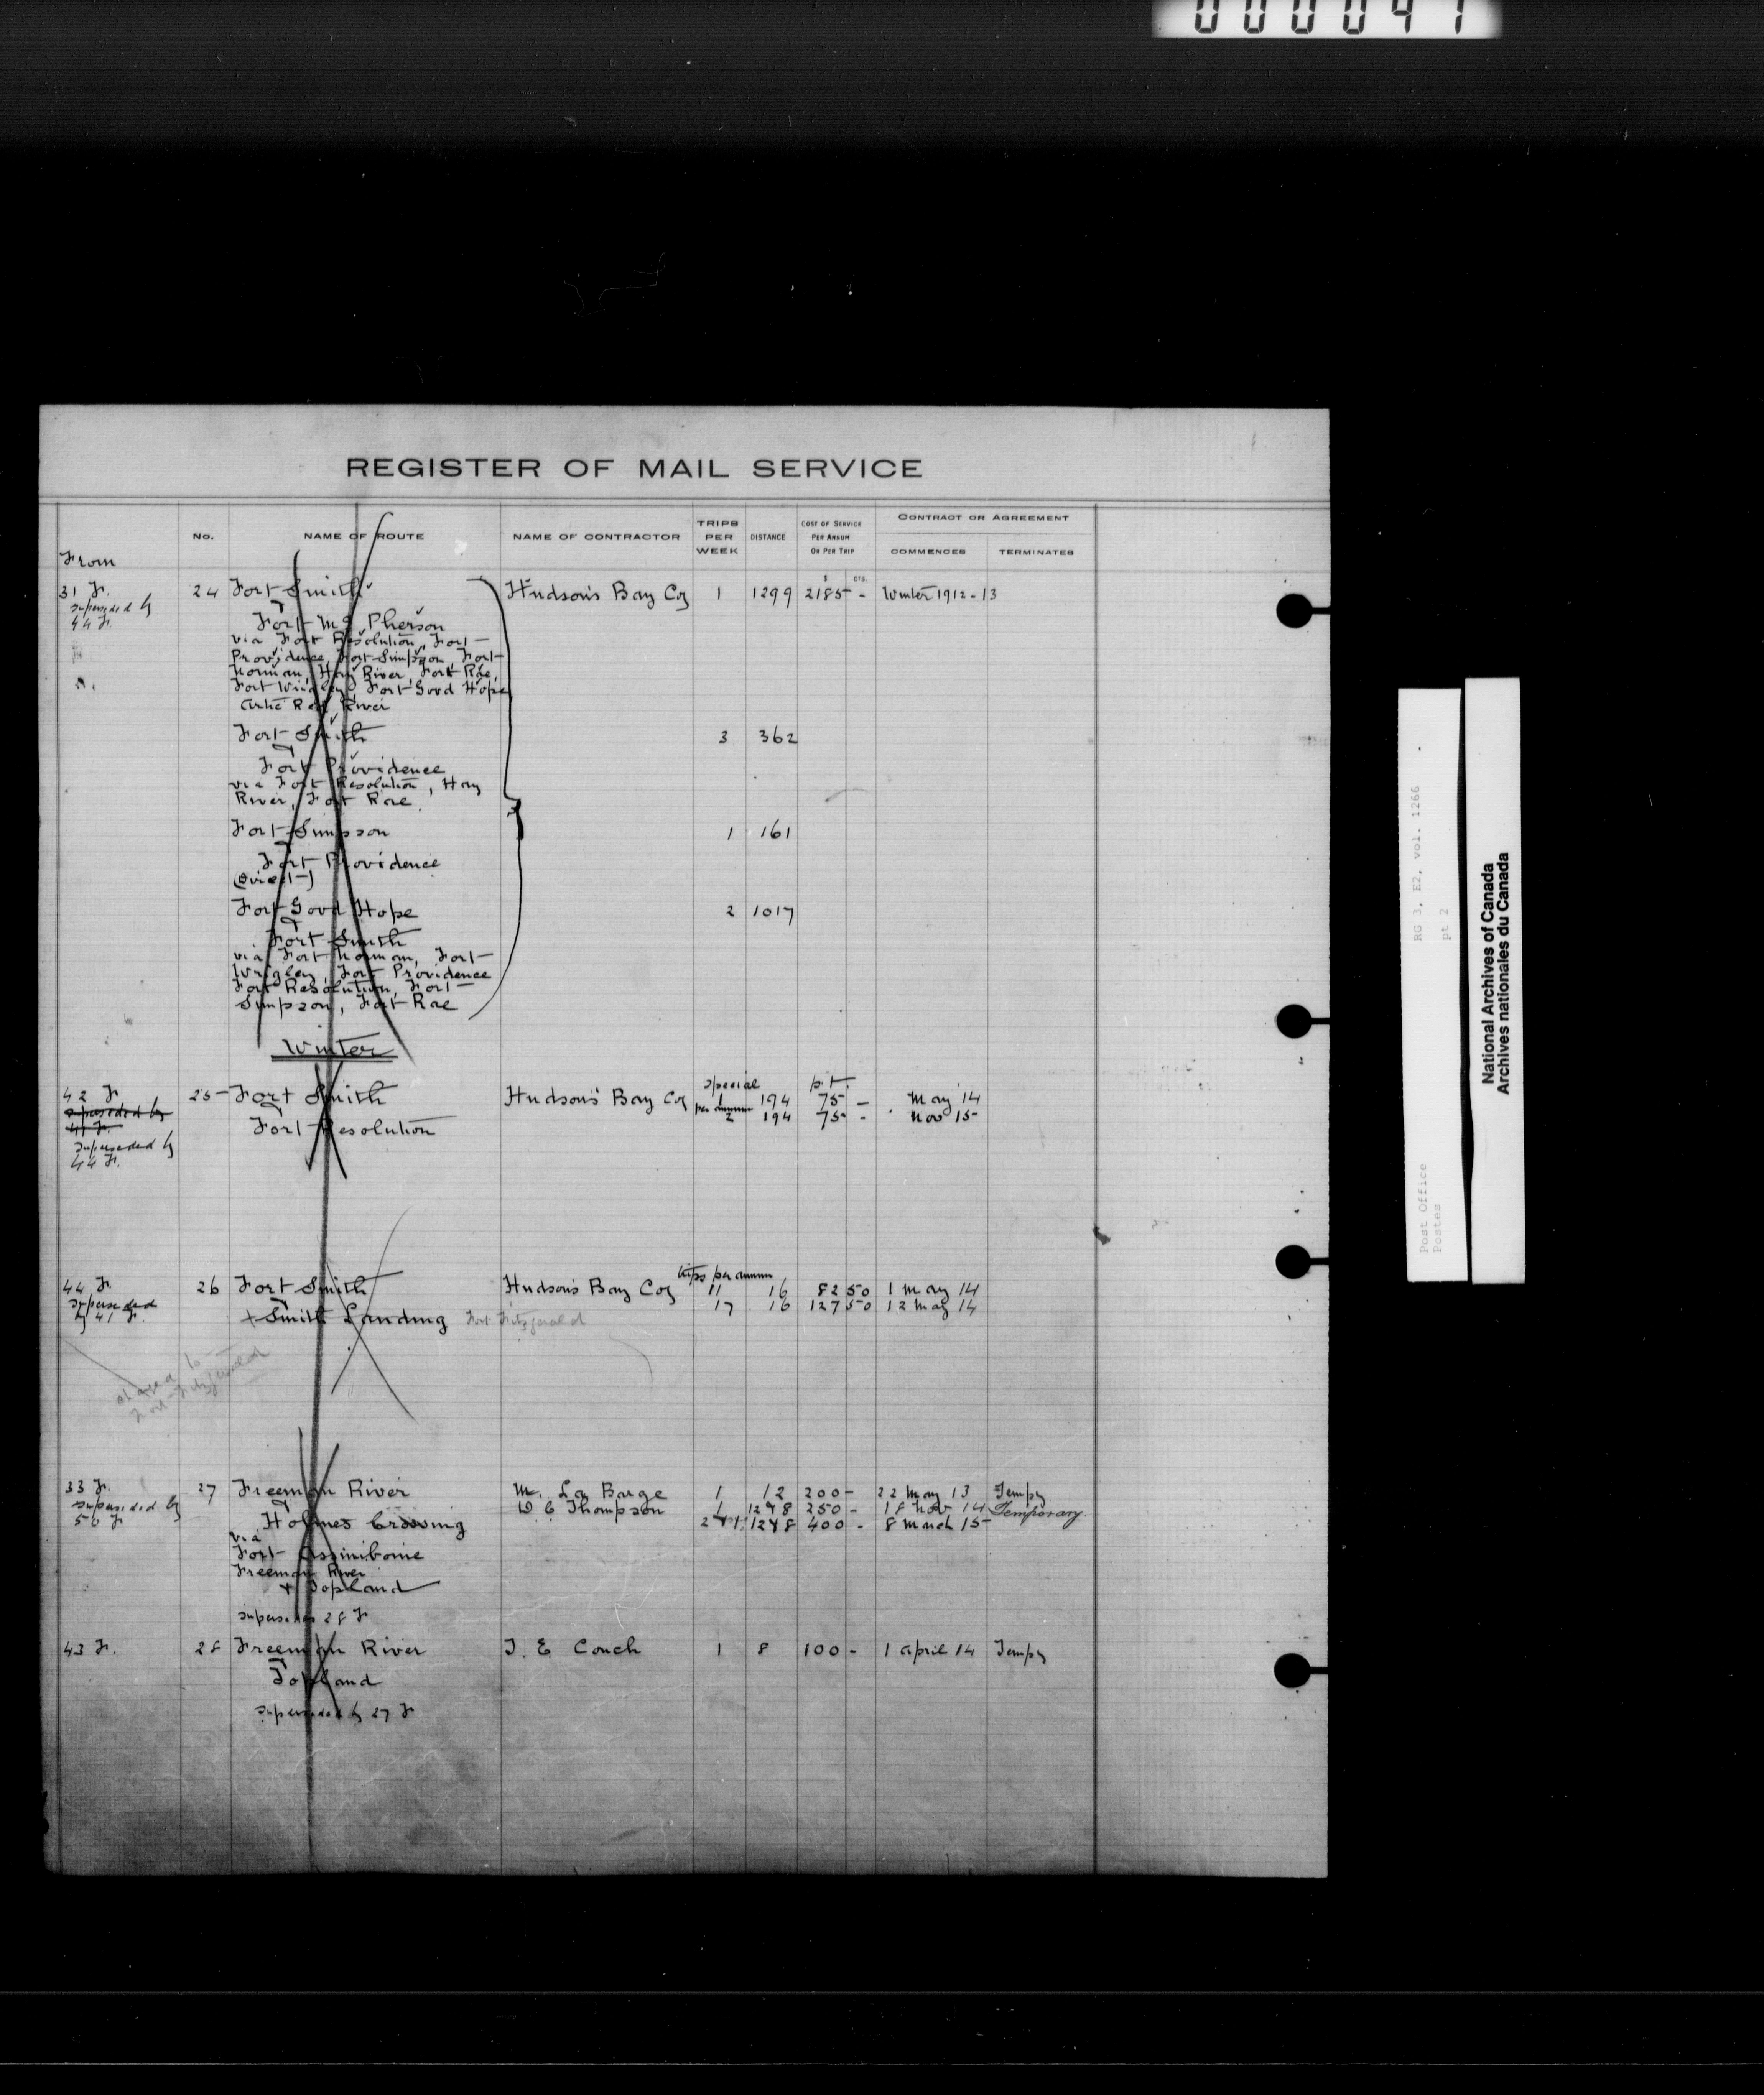 000041
REGISTER OF MAIL SERVICE
From
No.
NAME OF ROUTE
NAME OF CONTRACTOR
TRIPS PER WEEK
DISTANCE
COST OF SERVICE PER ANNUM OR PER TRIP
$ CTS.
CONTRACT OR AGREEMENT
COMMENCES
TERMINATES
31 Fr. 24 Fort Smith Hudson's Bay Coy 1 1299 2185 - Winter 1912-13
superseded by
44 Fr.
Fort Mc Pherson
via Fort Resolution, Fort
Providence, Fort Simpson, Fort
Norman, Hay River, Fort Rae,
Fort Wrigley, Fort Good Hope
Artic Red River
Fort Smith 3 362
Fort Providence
via Fort Resolution, Hay
River, Fort Rae
Fort Simpson 1 161
Fort Providence
(direct)
Fort Good Hope 2 1017
Fort Smith
via Fort Norman, Fort
Wrigley, Fort Providence
Fort Resolution, Fort
Simpson, Fort Rae
Winter
special p.t.
42 Fr. 25 Fort Smith Hudson's Bay Coy 1 194 75 - May 14
superseded by
41 Fr.
per annum 2 194 75 - Nov 15
Fort Resolution
superseded by
44 Fr.
trips per annum
44 Fr. 26 Fort Smith Hudson's Bay Coy 11 16 82 50 1 May 14
superseded 17 16 127 50 12 May 14
by 41 Fr.
+ Smith Landing Fort Fitzgerald
changed to
Fort Fitzgerald
33 Fr. 27 Freeman River M. La Barge 1 12 200 - 22 May 13 Tempy
superseded by D. E Thompson 1 12 250 - 18 Nov 14 Temporary
50 Fr. 400 - 8 March 15
Holmes Crossing
via
Fort Assiniboine
Freeman River
+ Topland
supersedes 28 Fr
43 Fr. 28 Freeman River J. E Couch 1 8 100 - 1 April 14 Tempy
Topland
superseded by 27 Fr
RG 3, E2, vol. 1266
pt 2
Post Office
Postes
National Archives of Canada
Archives nationales du Canada